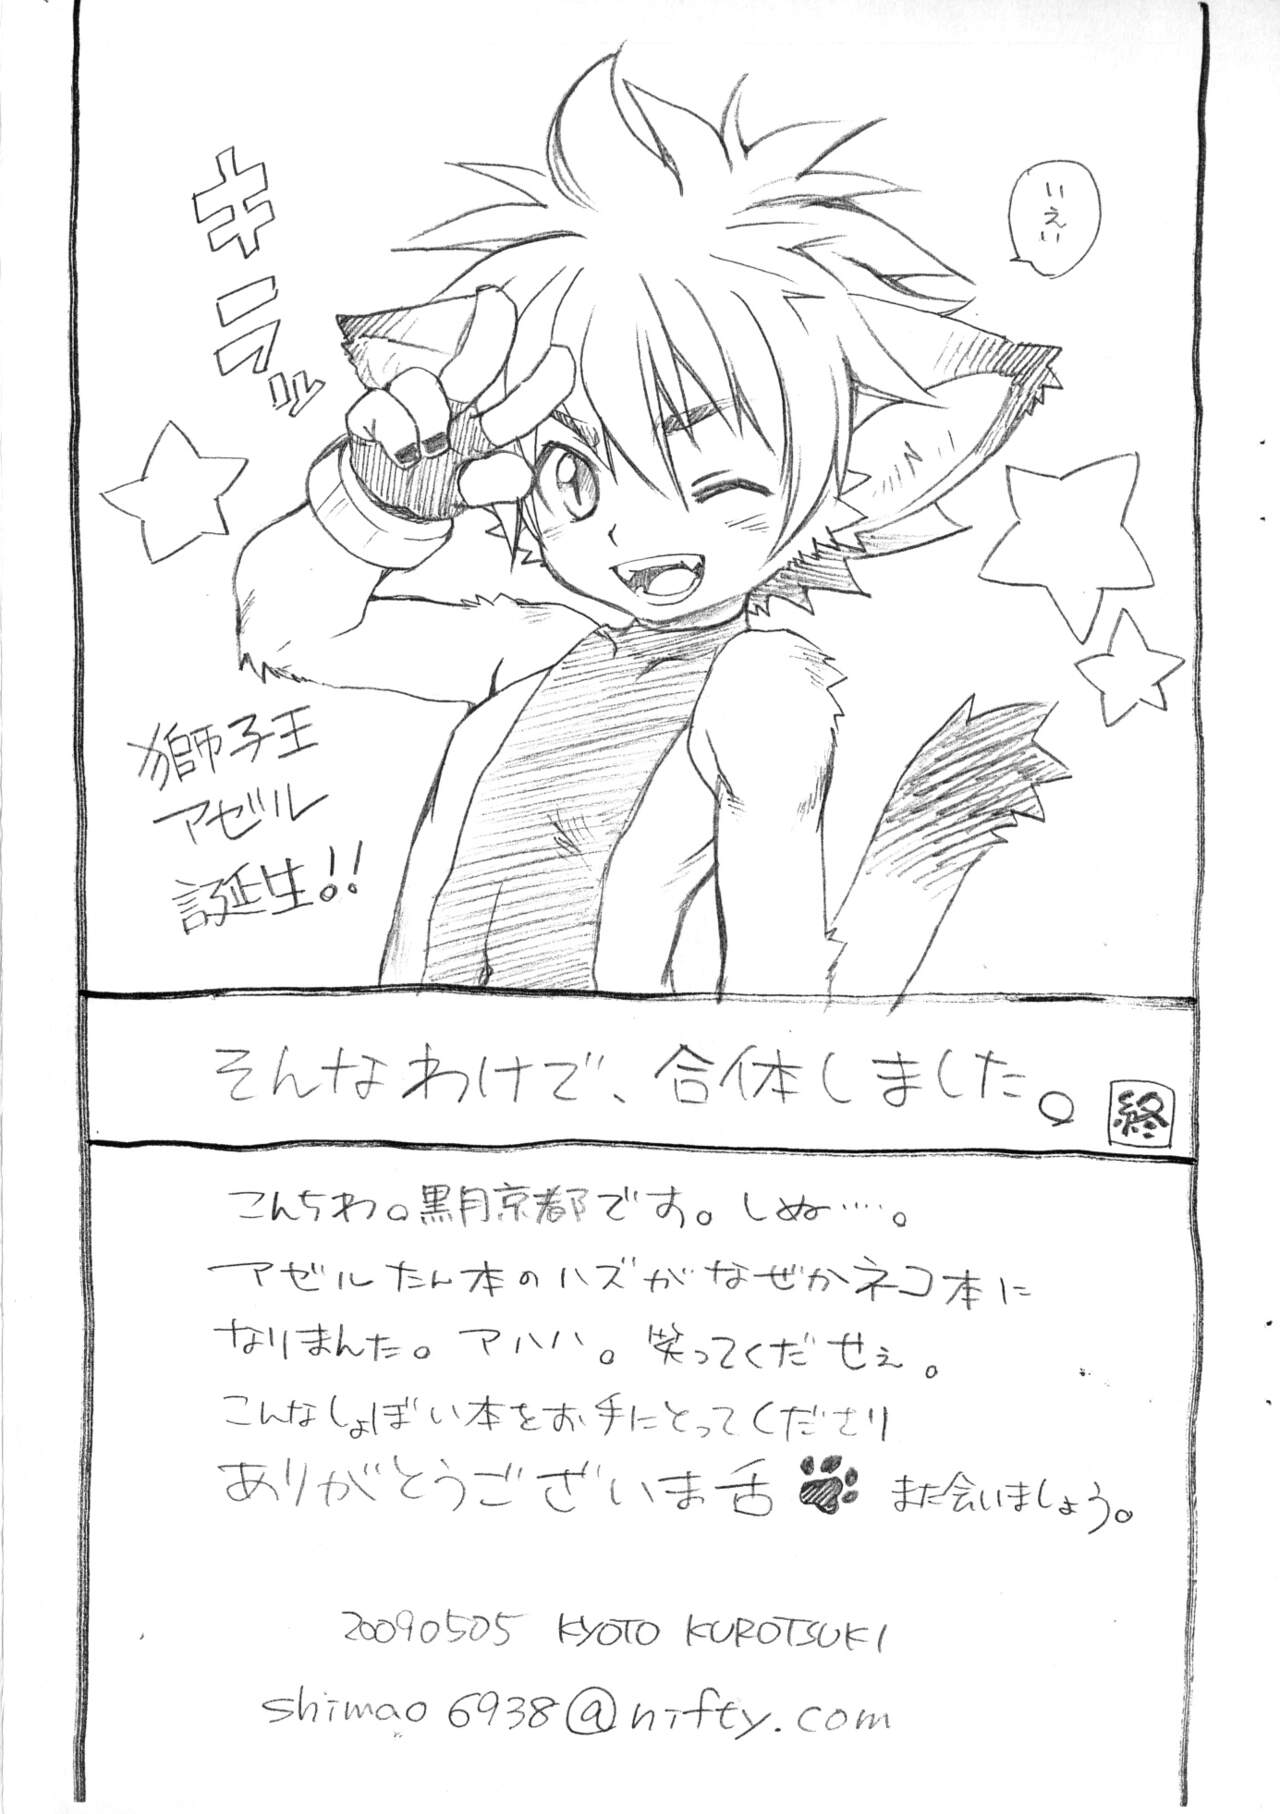 いえい
キラッ
獅子王
アゼル
誕生!!
そんなわけで、合体しました。
終
こんちわ。黒月京都です。しぬ……。
アゼルたん本のハズがなぜかネコ本に
なりまんた。アハハ。笑ってくだせぇ。
こんなしょぼい本をお手にとってくださり
ありがとうございま舌 また会いましょう。
20090505 KYOTO KUROTSUKI
shimao6938@nifty.com